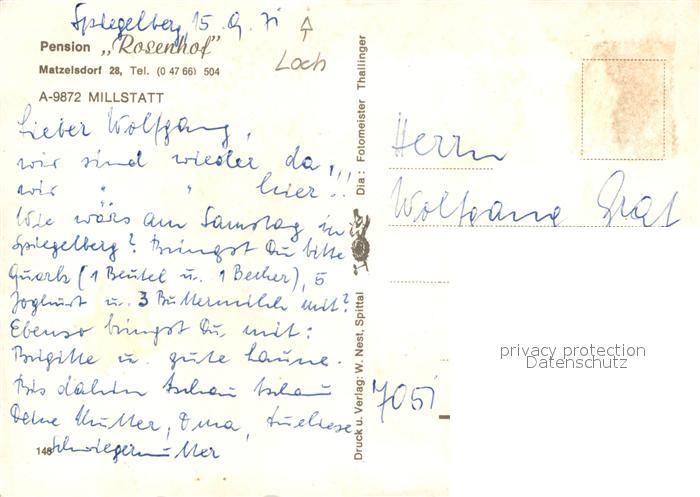 Spiegelberg, 15.9.71
Loch
Pension „Rosenhof"
Matzelsdorf 28, Tel. (0 47 66) 504
A-9872 MILLSTATT
Lieber Wolfgang,
wir sind wieder da,
wir " " hier!!
Wie wärs am Samstag in
Spiegelberg? Bringst Du bitte
Quark (1 Beutel u. 1 Becher), 5
Joghurt u. 3 Buttermilch mit?
Ebenso bringst Du mit:
Brigitte u. gute Laune.
Bis dahin tschau tschau
Deine Mutter, Oma,
Schwiegermutter
148
Dia: Fotomeister Thallinger
Druck u. Verlag: W. Nest, Spittal
Herrn
Wolfgang Graf
7051
privacy protection
Datenschutz